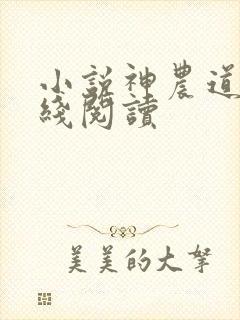 小說神農道
綫閱讀
美美的大拏